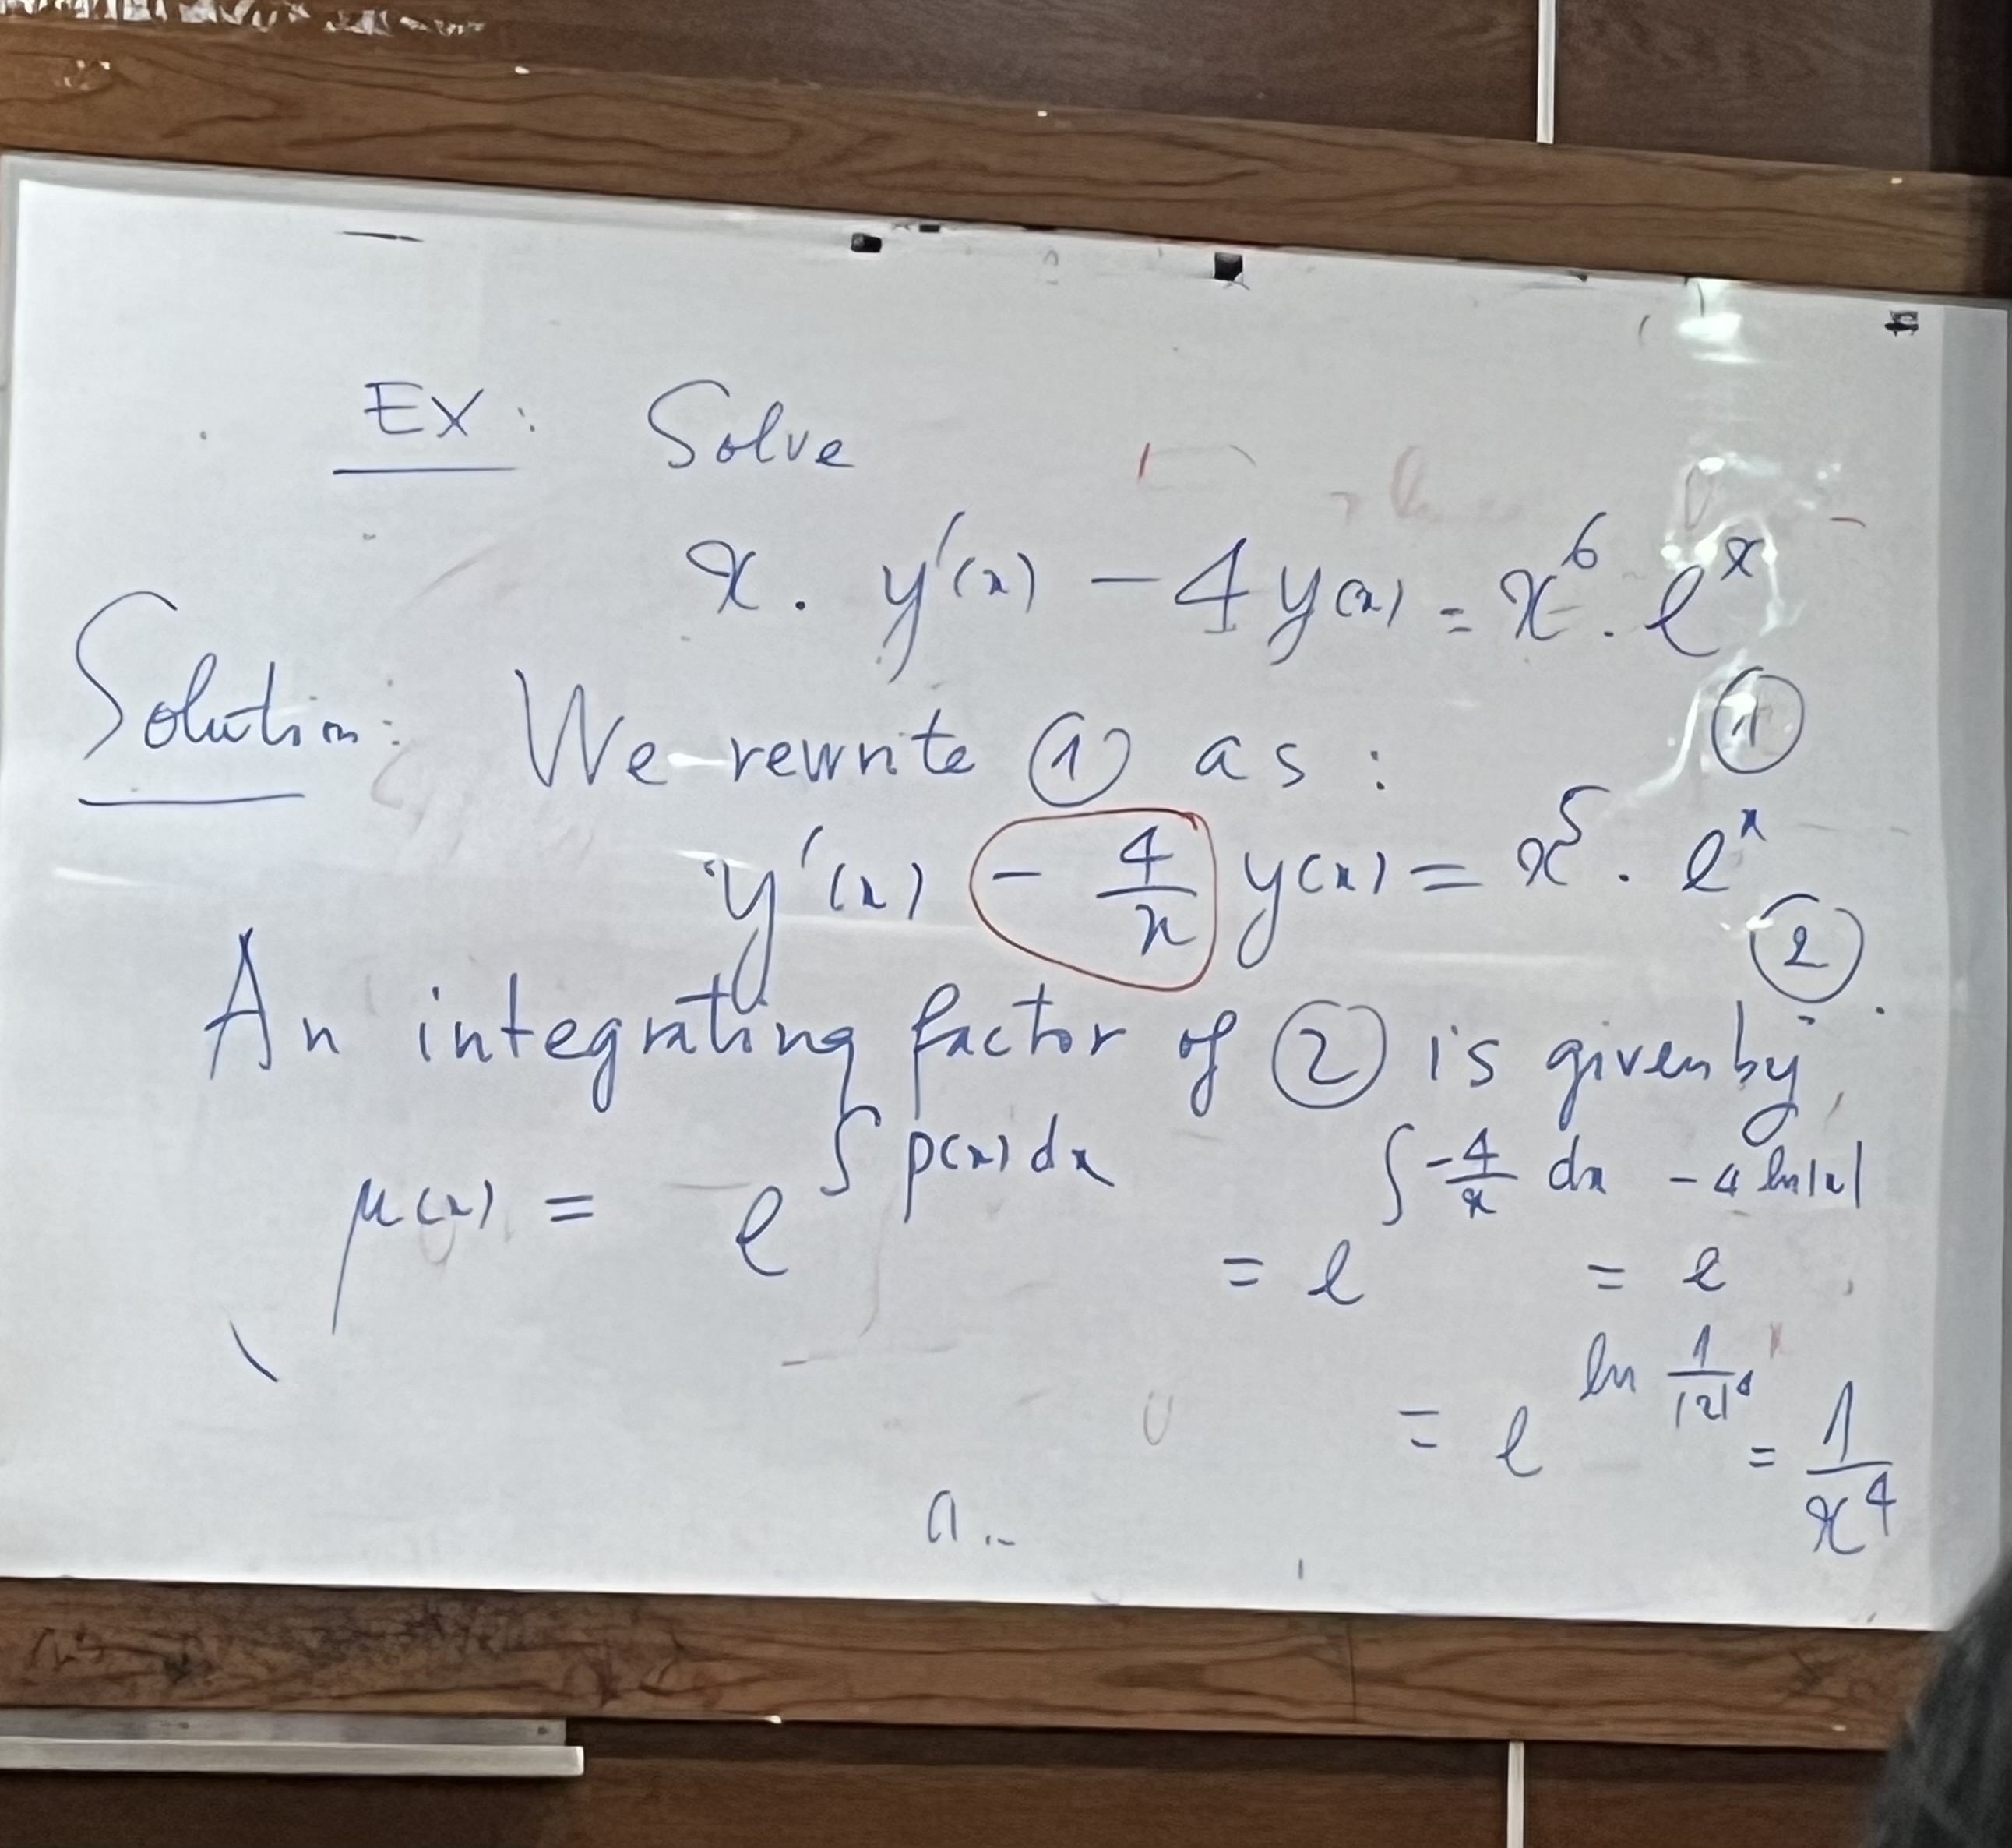 EX: Solve
x. y'(x) - 4y(x) = x⁶. eˣ
①
Solution: We rewrite ① as :
y'(x) - 4/x y(x) = x⁵. eˣ
②
An integrating factor of ② is given by
μ(x) = e^∫p(x)dx = e^∫-4/x dx = e^-4ln|x|
= e^ln 1/|x|⁴ = 1/x⁴